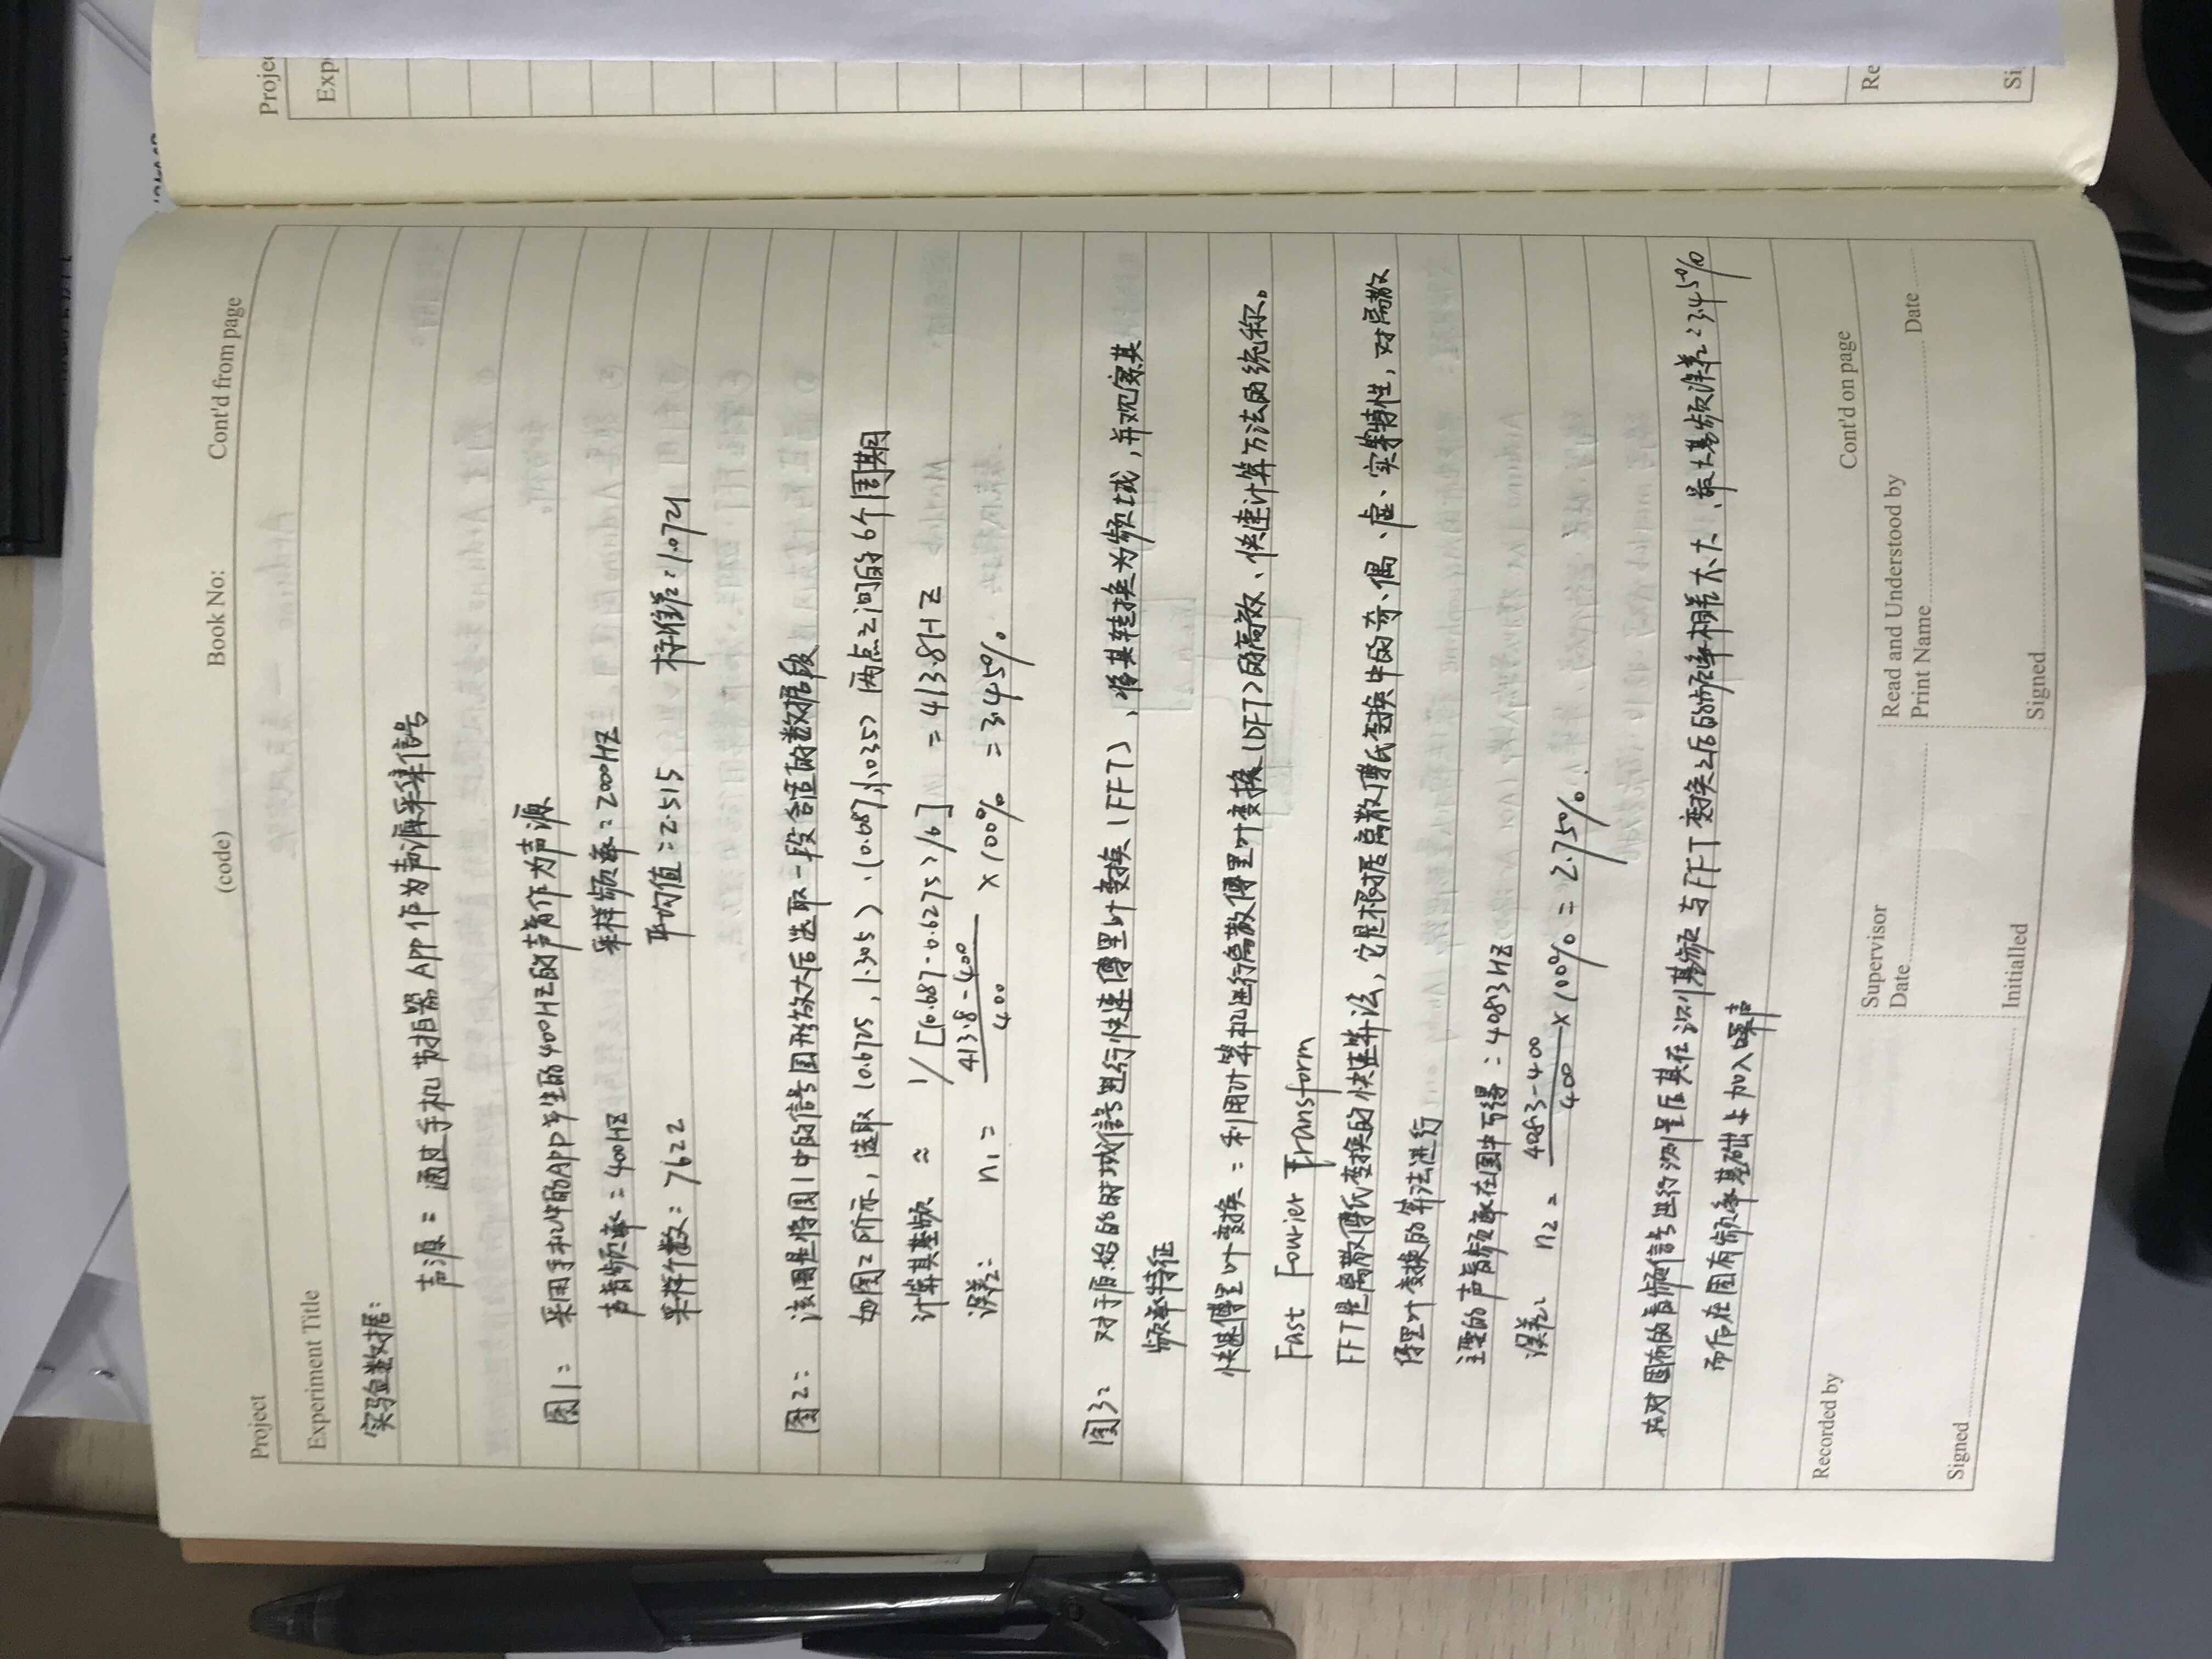 Project
(code)
Book No:
Cont'd from page
Experiment Title
实验数据:
声源: 通过手机节拍器APP作为声源采集信号
图1: 采用手机中的APP产生的400HZ的声音作为声源
声音频率: 400HZ 采样频率: 2000HZ
采样个数: 7622 平均值: 2.515 标准差: 1.0721
图2: 该图是将图1中的信号图形放大后选取一段合适的数据段
如图2所示, 选取 (0.6725, 1.305)、(0.687, 1.035) 两点之间的6个周期
计算其基频 ≈ 1/[(0.687-0.6275)/6] = 413.8HZ
误差: n1 = 413.8-400/400 × 100% = 3.45%
图3: 对于原始的时域信号进行快速傅里叶变换(FFT), 将其转换为频域, 并观察其
频率特征
快速傅里叶变换: 利用计算机进行离散傅里叶变换(DFT)的高效、快速计算方法的统称。
Fast Fourier Transform
FFT是离散傅氏变换的快速算法, 它是根据离散傅氏变换中的奇、偶、虚、实等特性, 对离散
傅里叶变换的算法进行
主要的声音频率在图中可得: 408.3HZ
误差: n2 = 408.3-400/400 × 100% = 2.75%
对固有的音频信号进行测量后其在识别基频与FFT变换之后的频率相差不大、最大基频误差: 3.45%
而后在固有频率基础上加入噪声
Recorded by
Supervisor
Date
Read and Understood by
Print Name
Date
Cont'd on page
Signed
Initialled
Signed
Projec
Exp
Re
Si